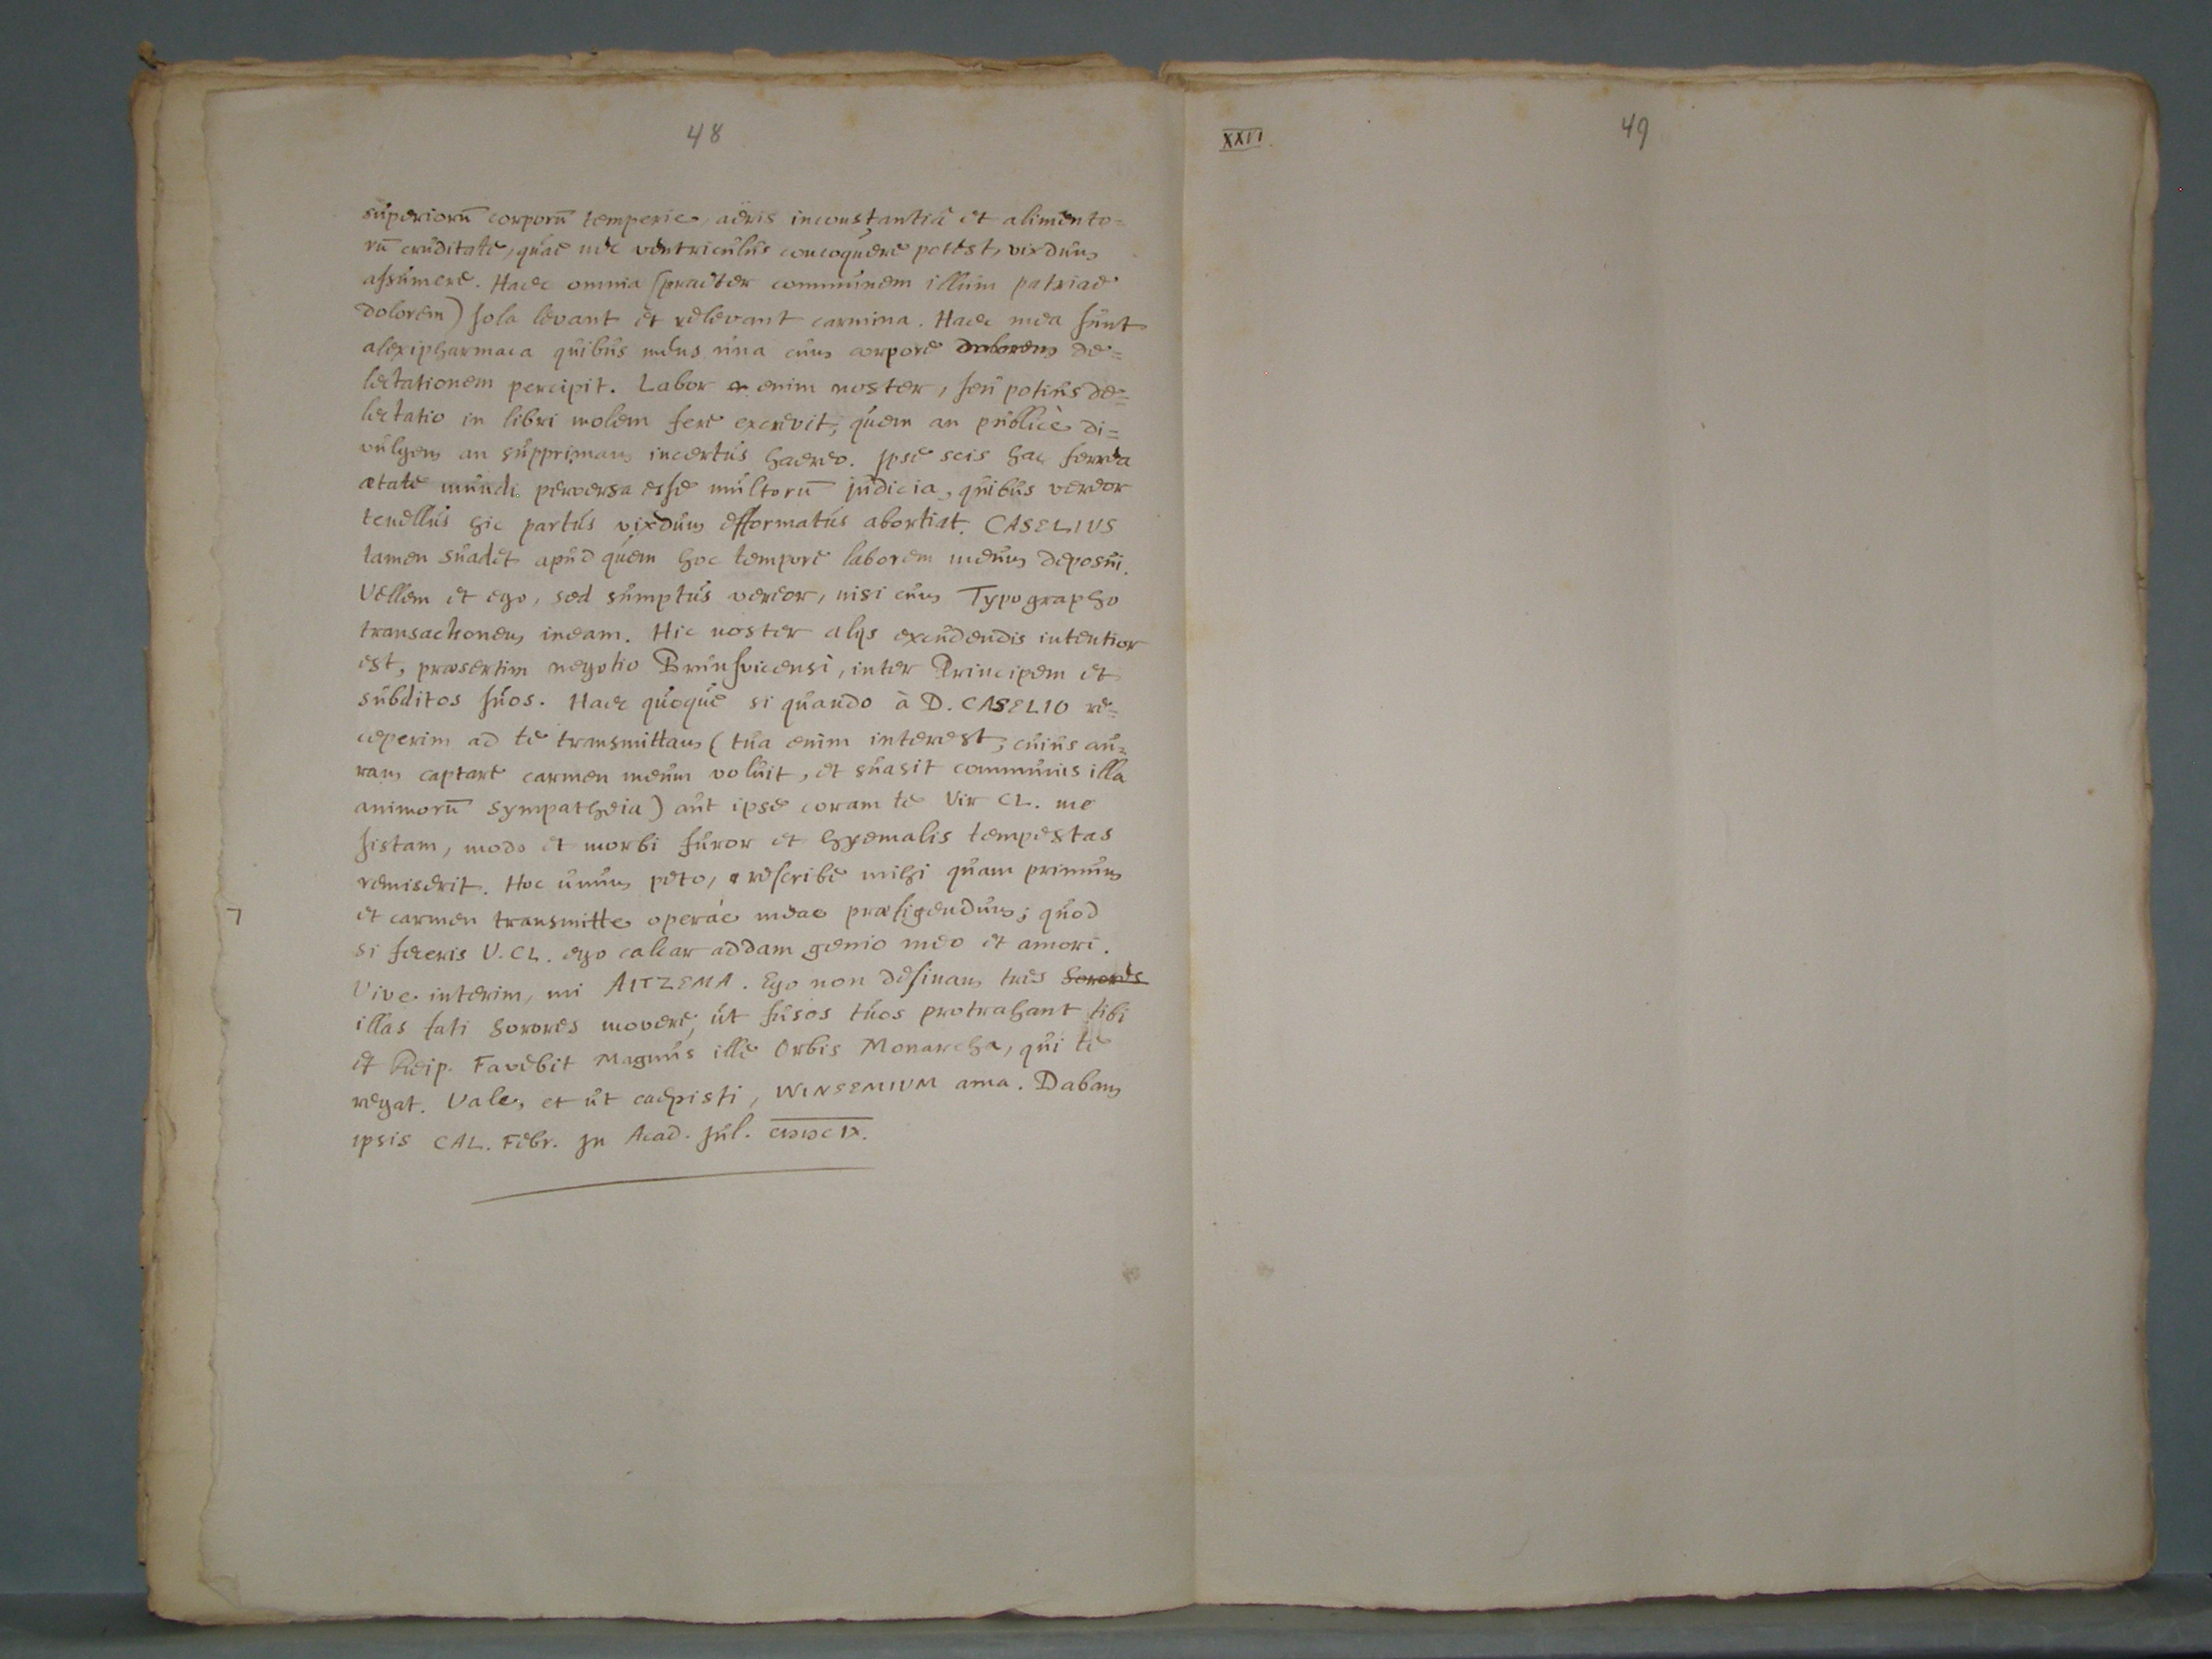 48
superiorū corporū temperie, aëris inconstantiâ et alimento=
rū cruditate, quae nec ventriculus concoquere potest, vixdum
assumere. Haec omnia (praeter communem illum patriae
dolorem) sola levant et relevant carmina. Haec mea sunt
alexipharmaca quibus mens una cum corpore dolorem de=
lectationem percipit. Labor enim noster, seu potius de=
lectatio in libri molem fere excrevit, quem an publicè di=
vulgem an supprimam incertus haereo. Ipse scis hac ferrea
ætate mundi perversa esse multorū judicia, quibus vereor
tenellus hic partus vixdum efformatus abortiat. CASELIUS
tamen suadet apud quem hoc tempore laborem meum deposui.
Vellem et ego, sed sumptus vereor, nisi cum Typographo
transactionem ineam. Hic noster alijs excudendis intentior
est, præsertim negotio Brunsvicensi, inter Principem et
subditos suos. Haec quoque si quando à D. CASELIO re=
ceperim ad te transmittam (tua enim interest, cuius au=
ram captare carmen meum voluit, et suasit communis illa
animorū sympatheia) aut ipse coram te Vir CL. me
sistam, modo et morbi furor et hyemalis tempestas
remiserit. Hoc unum peto, rescribe mihi quam primum
7
et carmen transmitte operae meae præfigendum; quod
si feceris V. CL. ego calcar addam genio meo et amori.
Vive interim, mi AITZEMA. Ego non desinam tres Sorores
illas fati Sorores movere, ut fusos tuos protrahant tibi
et Reip. Favebit Magnus ille Orbis Monarcha, qui te
regat. Vale, et ut caepisti, WINSEMIUM ama. Dabam
ipsis CAL. Febr. In Acad. Jul. CIƆIƆCIX.
XXVI.
49